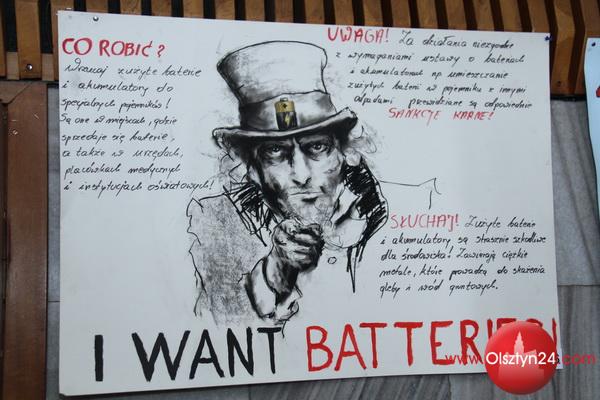 CO ROBIĆ?
Wrzucaj zużyte baterie
i akumulatory do
specjalnych pojemników!
Są one w miejscach, gdzie
sprzedaje się baterie,
a także w urzędach,
placówkach medycznych
i instytucjach oświatowych!
UWAGA! Za działania niezgodne
z wymaganiami ustawy o bateriach
i akumulatorach np. umieszczanie
zużytych baterii w pojemniku z innymi
odpadami przewidziane są odpowiednie
SANKCJE KARNE!
SŁUCHAJ! Zużyte baterie
i akumulatory są strasznie szkodliwe
dla środowiska! Zawierają ciężkie
metale, które prowadzą do skażenia
gleby i wód gruntowych.
I WANT BATTERIES!
www.Olsztyn24.com